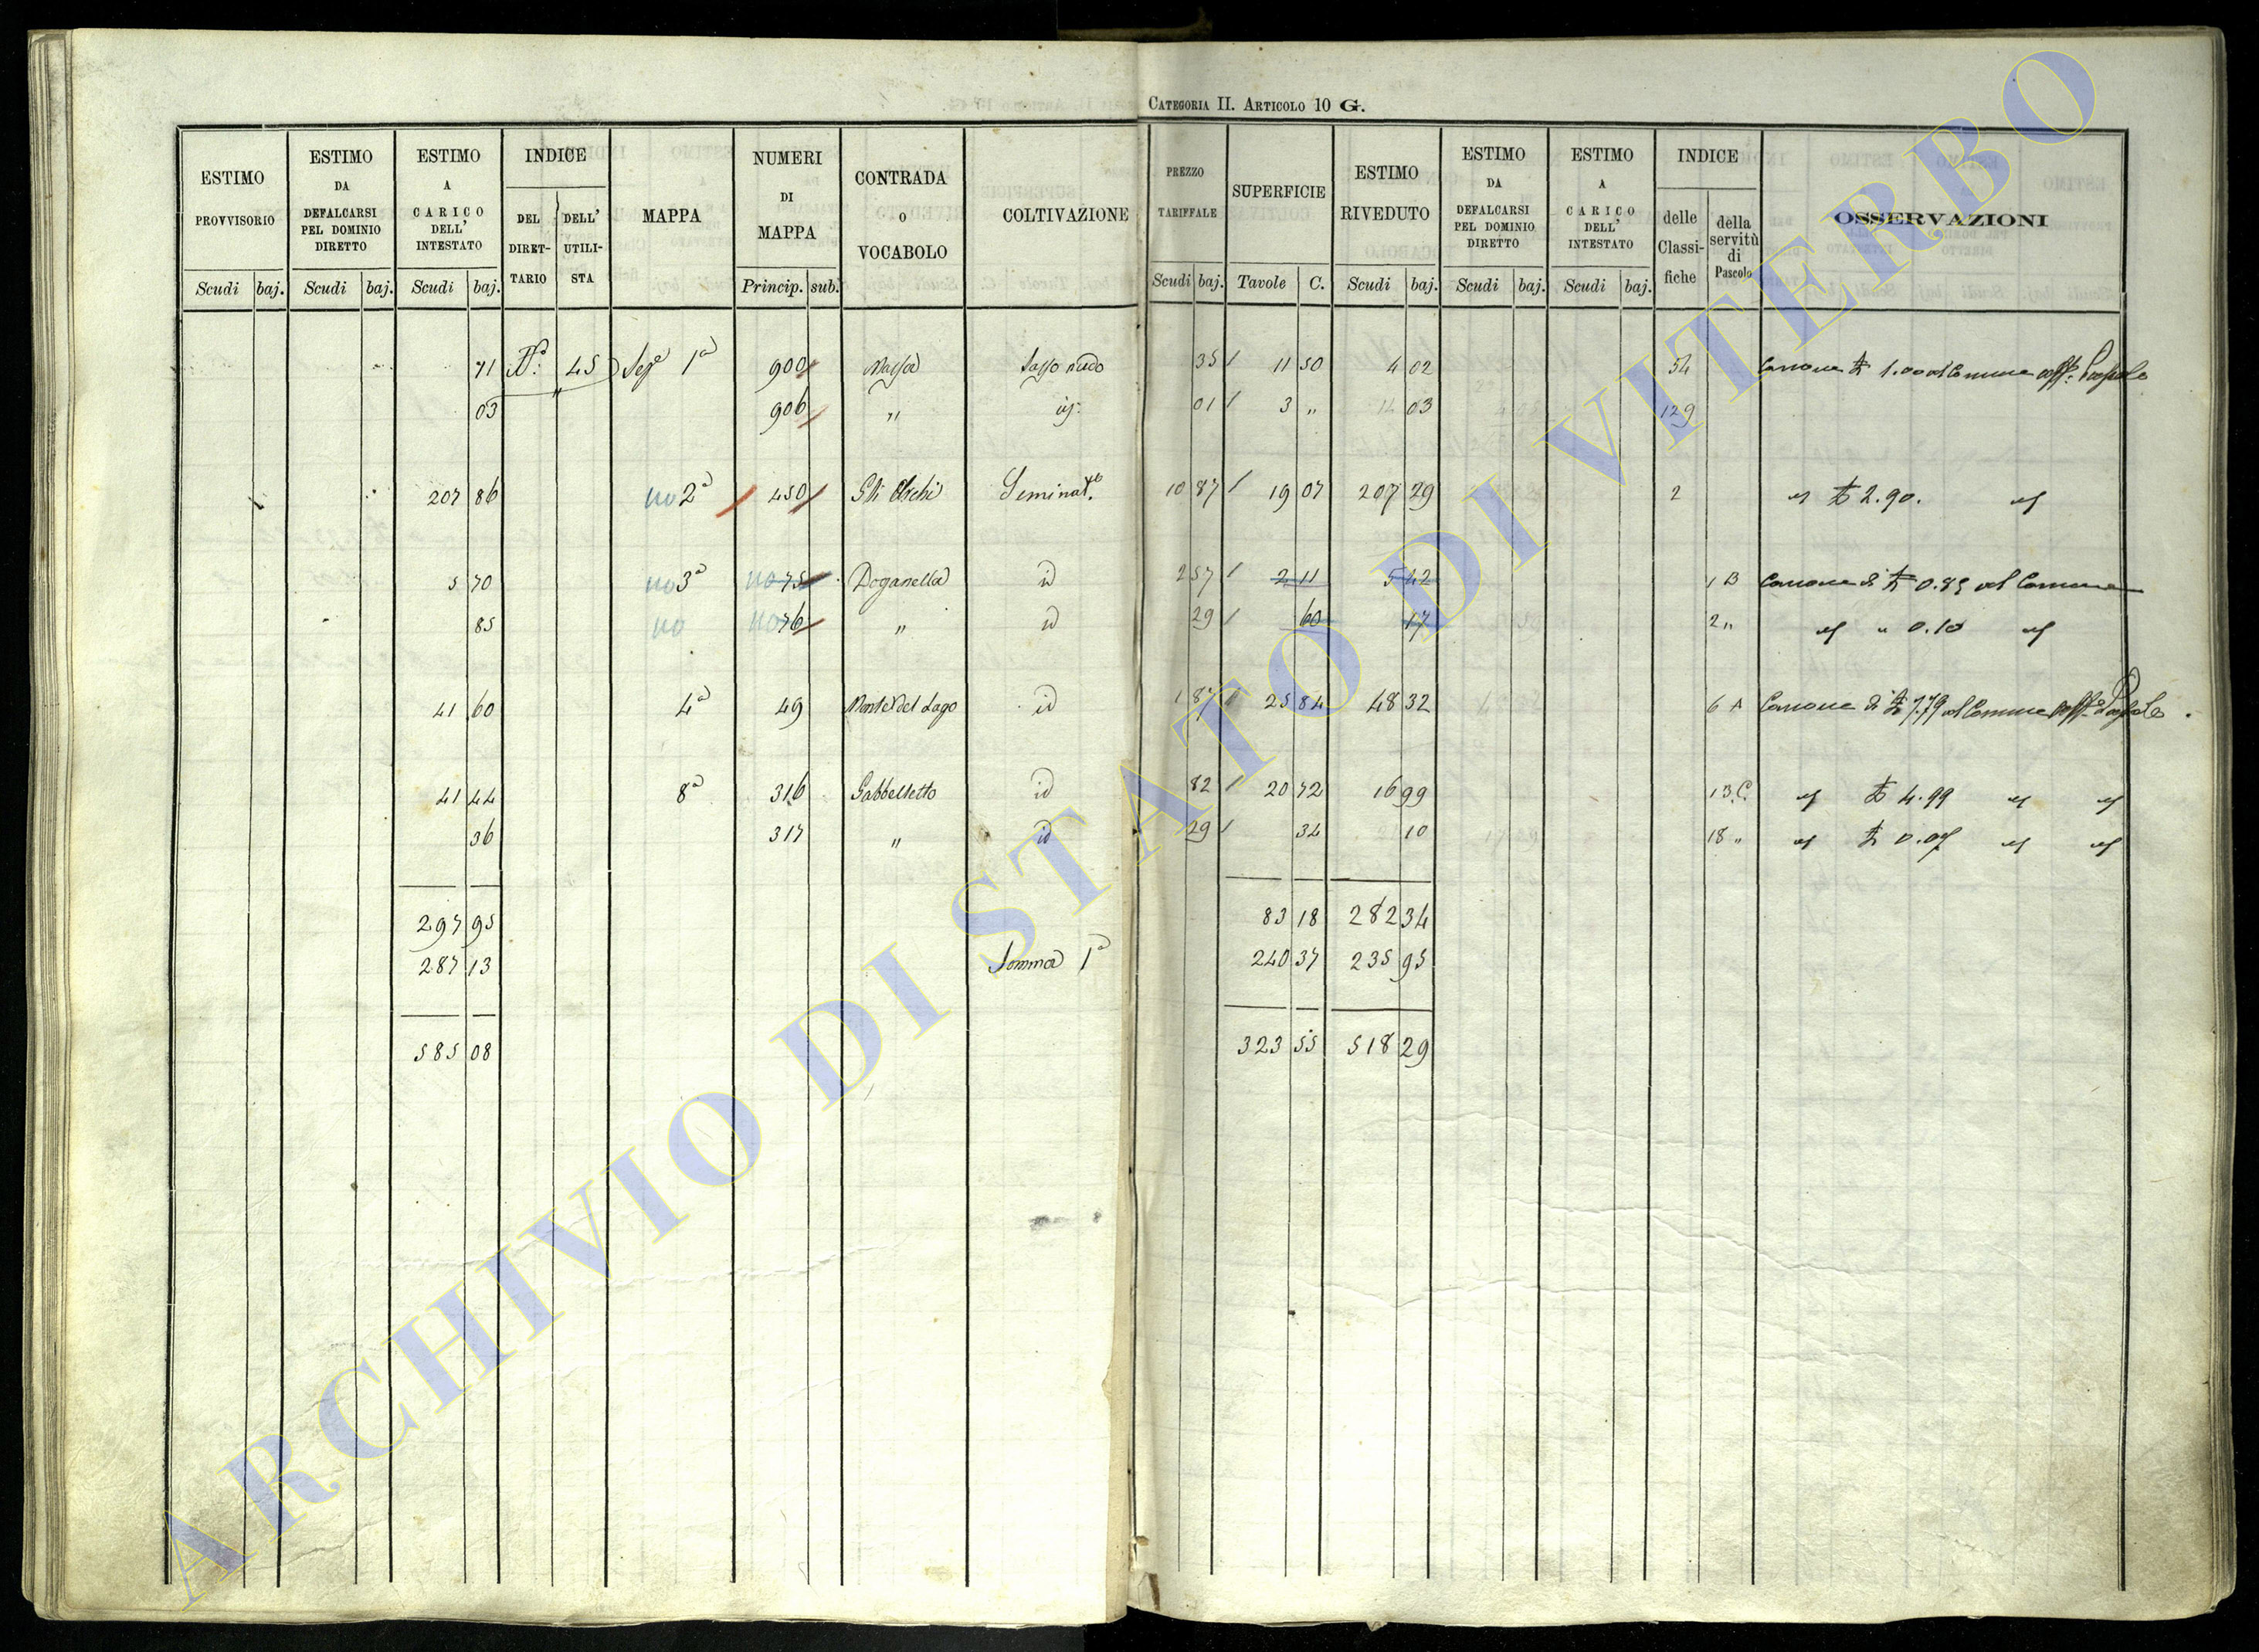 CATEGORIA II. ARTICOLO 10 G.
ESTIMO PROVVISORIO Scudi baj.
ESTIMO DA DEFALCARSI PEL DOMINIO DIRETTO Scudi baj.
ESTIMO A CARICO DELL' INTESTATO Scudi baj.
INDICE DEL DIRETTARIO DELL' UTILISTA
MAPPA
NUMERI DI MAPPA Princip. sub.
CONTRADA O VOCABOLO
COLTIVAZIONE
PREZZO TARIFFALE Scudi baj.
SUPERFICIE Tavole C.
ESTIMO RIVEDUTO Scudi baj.
ESTIMO DA DEFALCARSI PEL DOMINIO DIRETTO Scudi baj.
ESTIMO A CARICO DELL' INTESTATO Scudi baj.
INDICE delle Classifiche della servitù di Pascolo
OSSERVAZIONI
71 45 1a 900 Sasso nudo 35 11 50 4 02 54
03 906 " 01 3 " 03 129
207 86 no 2a 450 Seminat. 10 87 19 07 207 29 2 2.90.
5 70 no 3a no 75 Doganella id 2 57 2 11 5 42 1 B Canone di 0.85 al Comune
85 no no 76 " id 29 60 17 2 " " 0.10
41 60 4a 49 Monte del Lago id 1 87 25 84 48 32 6 A Canone di 7.79 al Comune
41 44 8a 316 Gabbelletto id 82 20 72 16 99 13 C. 4.99
36 317 " id 29 34 10 18 " 0.07
297 95 83 18 282 34
287 13 Somma 1a 240 37 235 95
585 08 323 55 518 29
ARCHIVIO DI STATO DI VITERBO